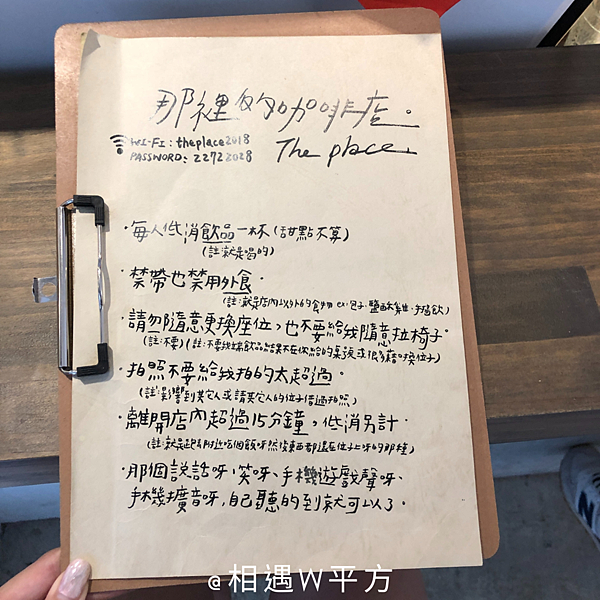 那裡的咖啡店。
WI-FI: theplace2018
PASSWORD: 22722028
The place.
·每人低消飲品一杯(甜點不算)
(註:就是喝的)
·禁帶也禁用外食。
(註:就是店內以外的食物 ex:包子、鹽酥雞、手搖飲)
·請勿隨意更換座位,也不要給我隨意拉椅子。
(註:不要)(註:不要我端飲品結果不在你給的桌號或很多藉口換位子)
·拍照不要給我拍的太超過。
(註:影響到其它人或請其它人的位子借過拍照)
·離開店內超過15分鐘,低消另計。
(註:就是跑到附近吃個飯呀然後東西都還在位子上呀的那種)
·那個說話呀、笑呀、手機遊戲聲呀、
手機擴音呀,自己聽的到就可以了。
@相遇W平方